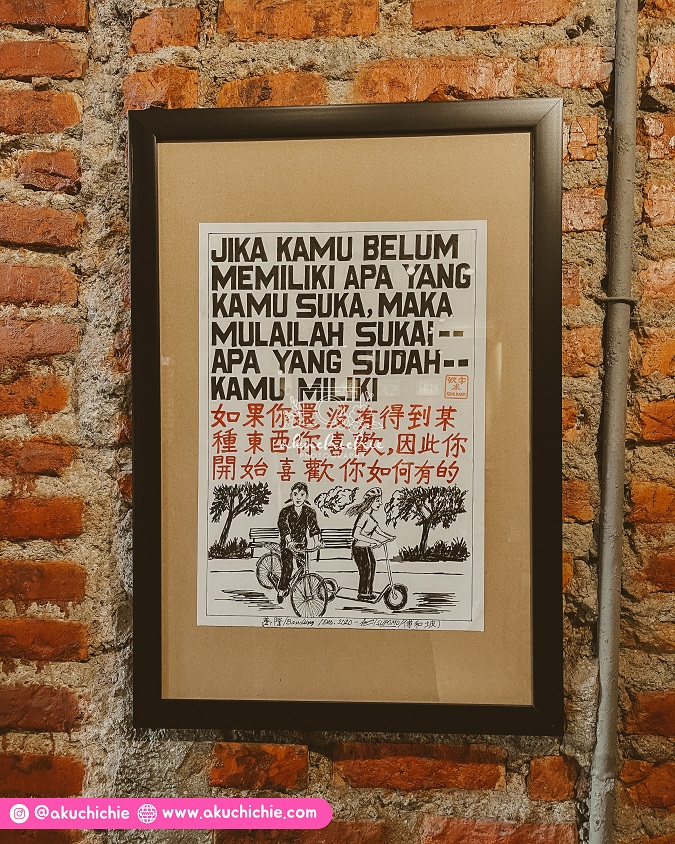 JIKA KAMU BELUM
MEMILIKI APA YANG
KAMU SUKA, MAKA
MULAILAH SUKAi--
APA YANG SUDAH--
KAMU MILIKI
如果你還沒有得到某
種東西你喜歡,因此你
開始喜歡你如何有的
萬隆/Bandung
2020
@akuchichie www.akuchichie.com